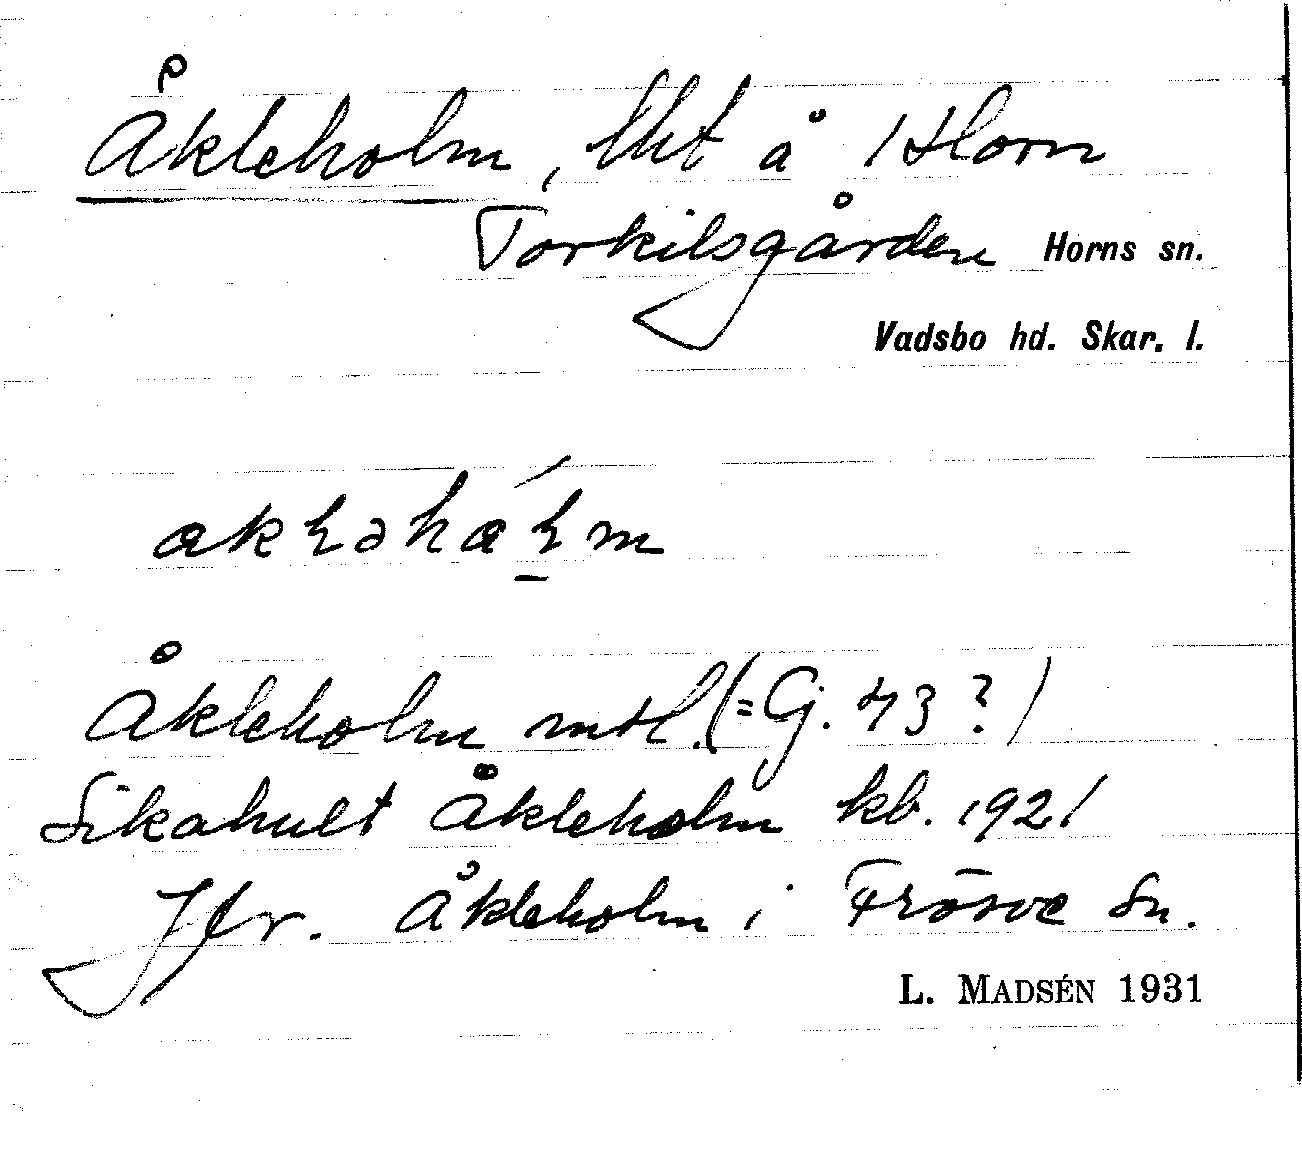 Åkleholm, lht å Horn
Torkilsgården Horns sn.
Vadsbo hd. Skar. l.
Åkleholm mtl. (=Gj. 43?)
Sikahult Åkleholm kb. 1921
Jfr. Åkleholm i Frösve sn.
L. MADSÉN 1931